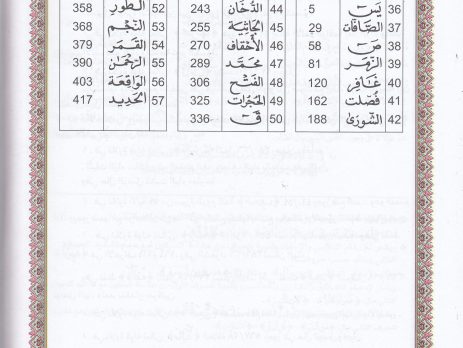 36 يس 5 44 الدخان 243 52 الطور 358
37 الصافات 29 45 الجاثية 255 53 النجم 368
38 ص 58 46 الأحقاف 270 54 القمر 379
39 الزمر 81 47 محمد 289 55 الرحمن 390
40 غافر 120 48 الفتح 306 56 الواقعة 403
41 فصلت 162 49 الحجرات 325 57 الحديد 417
42 الشورى 188 50 ق 336